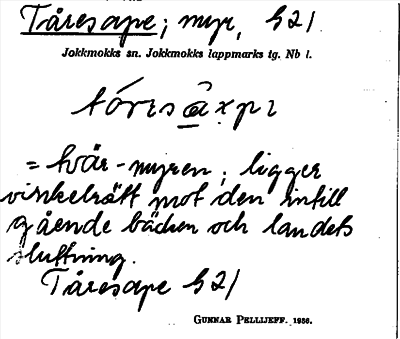 Tåresape; myr, h 21
Jokkmokks sn. Jokkmokks lappmarks tg. Nb l.
= tvär-myren; ligger
vinkelrätt mot den intill
gående bäcken och landets
sluttning.
Tåresape h 21
GUNNAR PELLIJEFF. 1956.